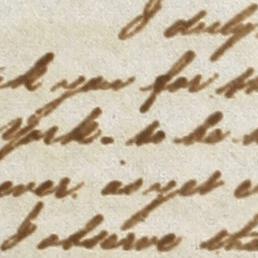 I duly
k you for th
York. to be
ever. as yet
I observe tha